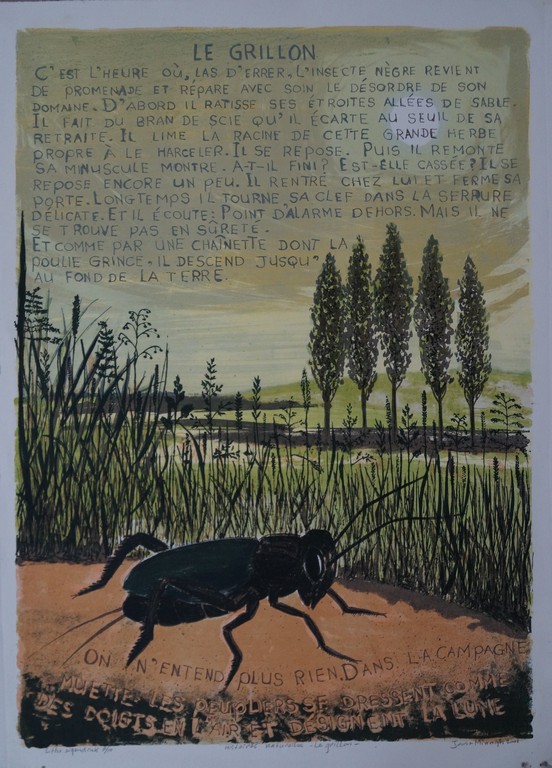 LE GRILLON
C'EST L'HEURE OÙ, LAS D'ERRER. L'INSECTE NÈGRE REVIENT
DE PROMENADE ET RÉPARE AVEC SOIN LE DÉSORDRE DE SON
DOMAINE. D'ABORD IL RATISSE SES ÉTROITES ALLÉES DE SABLE.
IL FAIT DU BRAN DE SCIE QU'IL ÉCARTE AU SEUIL DE SA
RETRAITE. IL LIME LA RACINE DE CETTE GRANDE HERBE
PROPRE À LE HARCELER. IL SE REPOSE. PUIS IL REMONTE
SA MINUSCULE MONTRE. A-T-IL FINI? EST-ELLE CASSÉE? IL SE
REPOSE ENCORE UN PEU. IL RENTRE CHEZ LUI ET FERME SA
PORTE. LONGTEMPS IL TOURNE SA CLEF DANS LA SERRURE
DÉLICATE. ET IL ÉCOUTE: POINT D'ALARME DEHORS. MAIS IL NE
SE TROUVE PAS EN SÛRETÉ.
ET COMME PAR UNE CHAÎNETTE DONT LA
POULIE GRINCE. IL DESCEND JUSQU'
AU FOND DE LA TERRE.
ON N'ENTEND PLUS RIEN. DANS LA CAMPAGNE
MUETTE LES PEUPLIERS SE DRESSENT COMME
DES DOIGTS EN L'AIR ET DÉSIGNENT LA LUNE
naturelles - Le grillon -